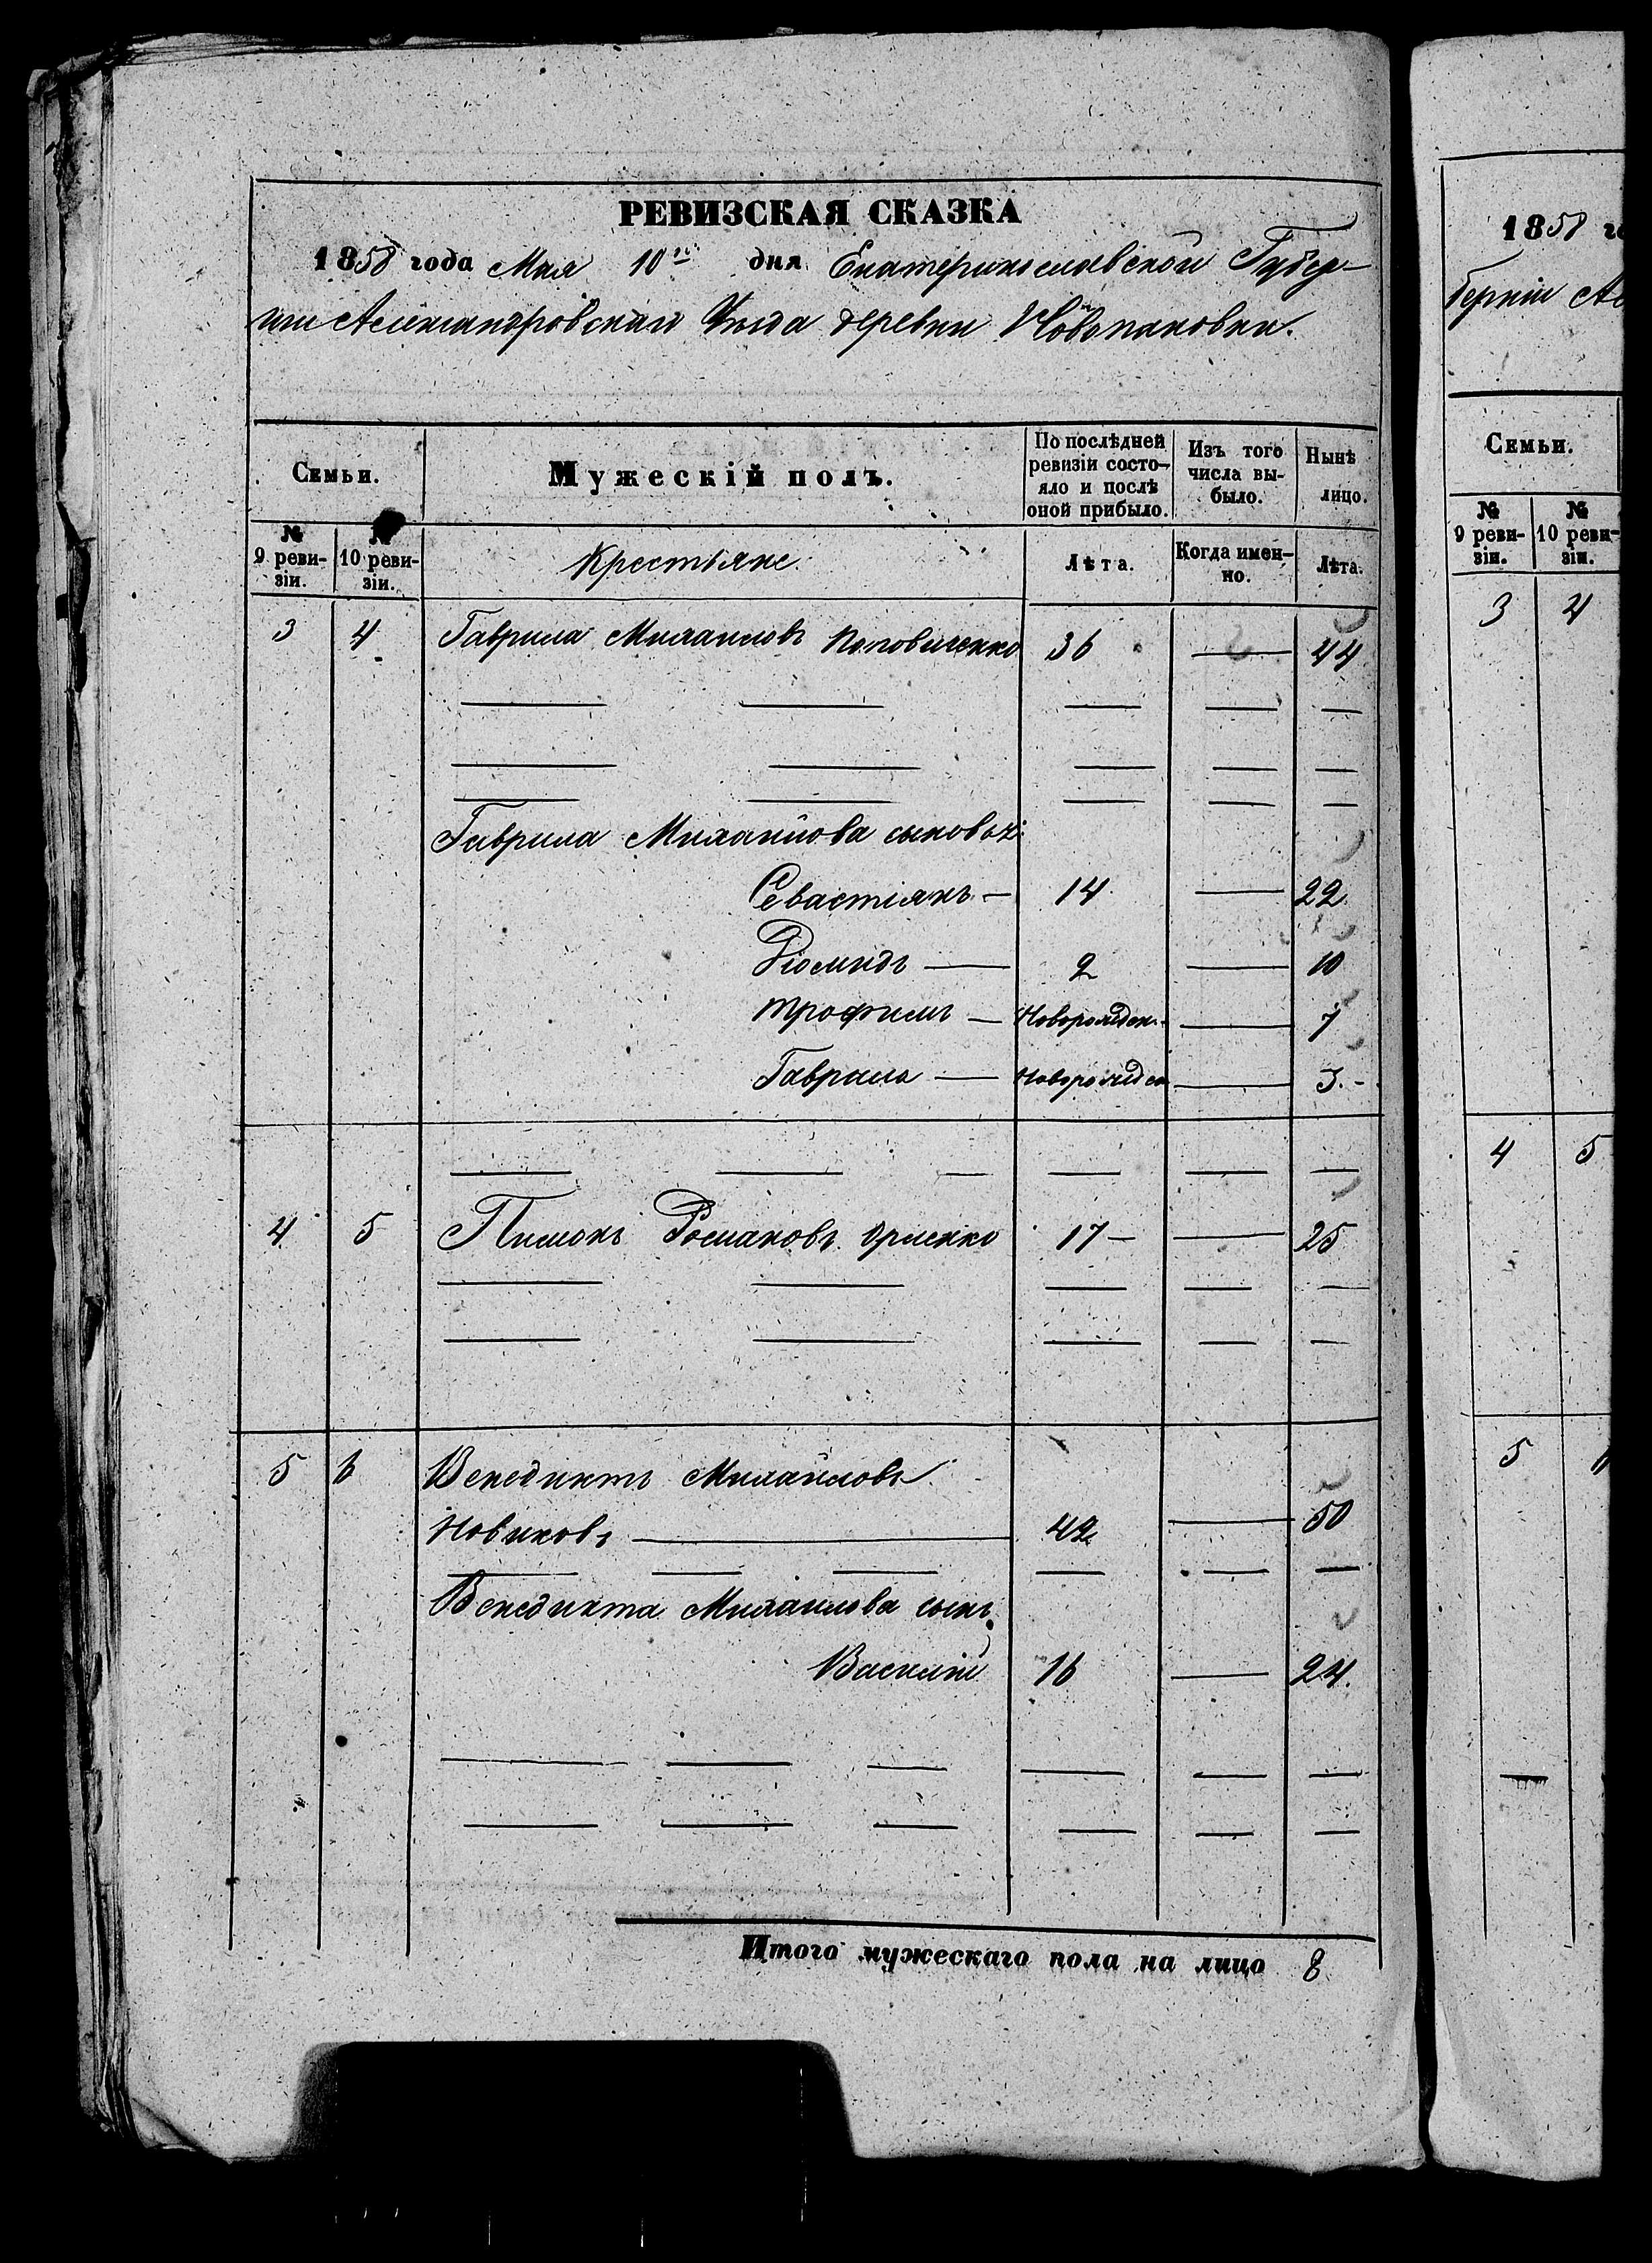 РЕВИЗСКАЯ СКАЗКА
1858 года Мая 10го дня Екатеринославской Губер-
нии Александровскаго Уѣзда деревни Новопановки.
Семьи.
Мужескій полъ.
По послѣдней ревизіи состо-
яло и послѣ оной прибыло.
Изъ того числа вы-
было.
Нынѣ лицо.
№ 9 реви-
зіи.
№ 10 реви-
зіи.
Крестьяне.
Лѣта.
Когда имен-
но.
Лѣта.
3 4 Гаврила Михаиловъ Поповиченко 36 — 44
Гаврила Михайлова сыновья:
Севастіянъ — 14 — 22
2 — 10
Трофимъ — Новорожден. — 7
Гаврила — Новорожден — 3.
4 5 Пимонъ Романовъ 17 — 25
5 6 Венедиктъ Михайловъ
Новиковъ — 42 — 50
Венедикта Михаилова сынъ
Василій 16 — 24.
Итого мужескаго пола на лицо 8
1858 го
берніи Ал
Семьи.
№ 9 реви-
зіи.
№ 10 реви-
зіи.
3 4
4 5
5